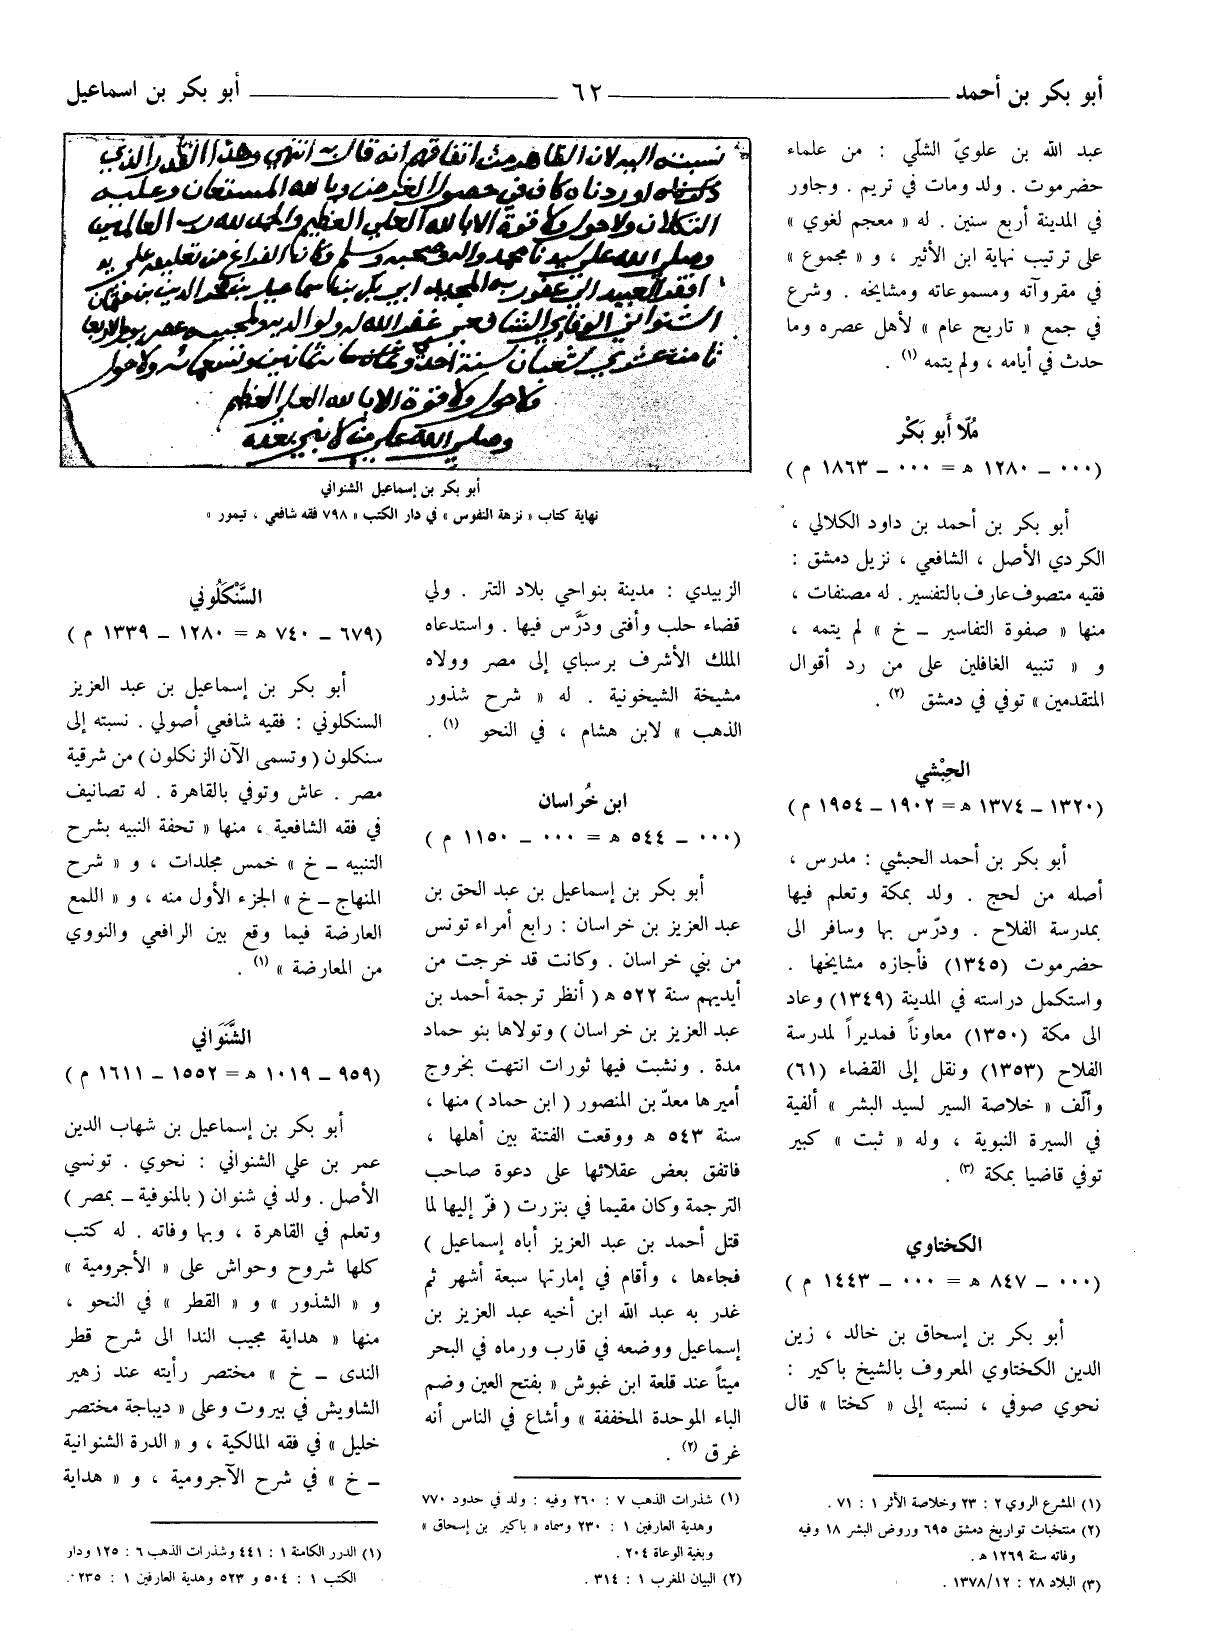 أبو بكر بن أحمد
٦٢
أبو بكر بن اسماعيل
عبد الله بن علويّ الشلّي : من علماء
حضرموت . ولد ومات في تريم . وجاور
في المدينة أربع سنين . له « معجم لغوي »
على ترتيب نهاية ابن الأثير ، و « مجموع »
في مقروآته ومسموعاته ومشايخه . وشرع
في جمع « تاريح عام » لأهل عصره وما
حدث في أيامه ، ولم يتمه (١) .
مُلّا أَبو بَكْر
(٠٠٠ – ١٢٨٠ ه = ٠٠٠ – ١٨٦٣ م )
أبو بكر بن أحمد بن داود الكلالي ،
الكردي الأصل ، الشافعي ، نزيل دمشق :
فقيه متصوف عارف بالتفسير . له مصنفات ،
منها « صفوة التفاسير – خ » لم يتمه ،
و « تنبيه الغافلين على من رد أقوال
المتقدمين » توفي في دمشق (٢) .
الحِبْشي
(١٣٢٠ – ١٣٧٤ ه = ١٩٠٢ – ١٩٥٤ م )
أبو بكر بن أحمد الحبشي : مدرس ،
أصله من لحج . ولد بمكة وتعلم فيها
بمدرسة الفلاح . ودرّس بها وسافر الى
حضرموت (١٣٤٥) فأجازه مشايخها .
واستكمل دراسته في المدينة (١٣٤٩) وعاد
الى مكة (١٣٥٠) معاوناً فمديراً لمدرسة
الفلاح (١٣٥٣) ونقل إلى القضاء (٦١)
وألّف « خلاصة السير لسيد البشر » ألفية
في السيرة النبوية ، وله « ثبت » كبير
توفي قاضيا بمكة (٣) .
الكختاوي
(٠٠٠ – ٨٤٧ ه = ٠٠٠ – ١٤٤٣ م )
أبو بكر بن إسحاق بن خالد ، زين
الدين الكختاوي المعروف بالشيخ باكير :
نحوي صوفي ، نسبته إلى « كختا » قال
(١) المشرع الروي ٢ : ٢٣ وخلاصة الأثر ١ : ٧١ .
(٢) منتخبات تواريخ دمشق ٦٩٥ وروض البشر ١٨ وفيه
وفاته سنة ١٢٦٩ ه .
(٣) البلاد ٢٨ : ١٣٧٨/١٢ .
نسبته اليه لان الظاهر من اتفاقهم انه قال به انتهى وهذا القدر الذي
اوردناه كاف في حصول الغرض وبالله المستعان وعليه
التكلان ولا حول ولا قوة الا بالله العلي العظيم والحمد لله رب العالمين
وصلى الله على سيدنا محمد واله وصحبه وسلم وكان الفراغ من تعليقه على يد
افقر العبيد الى عفو ربه المجيد ابي بكر بن اسماعيل بن شهاب الدين بن
الشنواني الوفاي الشافعي غفر الله له ولوالديه ولمحبيه عصر يوم الاربعا
ثامن عشري شعبان سنة احد وثمانين وتسعمائه ولا حول
ولا حول ولا قوة الا بالله العلي العظيم
وصلى الله على من لا نبي بعده
أبو بكر بن إسماعيل الشنواني
نهاية كتاب « نزهة النفوس » في دار الكتب « ٧٩٨ فقه شافعي ، تيمور »
الزبيدي : مدينة بنواحي بلاد التتر . ولي
قضاء حلب وأفتى ودَرَّس فيها . واستدعاه
الملك الأشرف برسباي إلى مصر وولاه
مشيخة الشيخونية . له « شرح شذور
الذهب » لابن هشام ، في النحو (١) .
ابن خُراسان
(٠٠٠ – ٥٤٤ ه = ٠٠٠ – ١١٥٠ م )
أبو بكر بن إسماعيل بن عبد الحق بن
عبد العزيز بن خراسان : رابع أمراء تونس
من بني خراسان . وكانت قد خرجت من
أيديهم سنة ٥٢٢ ه ( أنظر ترجمة أحمد بن
عبد العزيز بن خراسان ) وتولاها بنو حماد
مدة . ونشبت فيها ثورات انتهت بخروج
أميرها معدّ بن المنصور ( ابن حماد ) منها ،
سنة ٥٤٣ ه ووقعت الفتنة بين أهلها ،
فاتفق بعض عقلائها على دعوة صاحب
الترجمة وكان مقيما في بنزرت ( فرّ إليها لما
قتل أحمد بن عبد العزيز أباه إسماعيل )
فجاءها ، وأقام في إمارتها سبعة أشهر ثم
غدر به عبد الله ابن أخيه عبد العزيز بن
إسماعيل ووضعه في قارب ورماه في البحر
ميتاً عند قلعة ابن غبوش « بفتح العين وضم
الباء الموحدة المخففة » وأشاع في الناس أنه
غرق (٢) .
(١) شذرات الذهب ٧ : ٢٦٠ وفيه : ولد في حدود ٧٧٠
وهدية العارفين ١ : ٢٣٠ وسماه « باكير بن إسحاق »
وبغية الوعاة ٢٠٤ .
(٢) البيان المغرب ١ : ٣١٤ .
السَّنْكَلُوني
(٦٧٩ – ٧٤٠ ه = ١٢٨٠ – ١٣٣٩ م )
أبو بكر بن إسماعيل بن عبد العزيز
السنكلوني : فقيه شافعي أصولي . نسبته إلى
سنكلون ( وتسمى الآن الزنكلون ) من شرقية
مصر . عاش وتوفي بالقاهرة . له تصانيف
في فقه الشافعية ، منها « تحفة النبيه بشرح
التنبيه – خ » خمس مجلدات ، و « شرح
المنهاج – خ » الجزء الأول منه ، و « اللمع
العارضة فيما وقع بين الرافعي والنووي
من المعارضة » (١) .
الشَّنَوَاني
(٩٥٩ – ١٠١٩ ه = ١٥٥٢ – ١٦١١ م )
أبو بكر بن إسماعيل بن شهاب الدين
عمر بن علي الشنواني : نحوي . تونسي
الأصل . ولد في شنوان ( بالمنوفية – بمصر )
وتعلم في القاهرة ، وبها وفاته . له كتب
كلها شروح وحواش على « الأجرومية »
و « الشذور » و « القطر » في النحو ،
منها « هداية مجيب الندا الى شرح قطر
الندى – خ » مختصر رأيته عند زهير
الشاويش في بيروت وعلى « ديباجة مختصر
خليل » في فقه المالكية ، و « الدرة الشنوانية
– خ » في شرح الآجرومية ، و « هداية
(١) الدرر الكامنة ١ : ٤٤١ وشذرات الذهب ٦ : ١٢٥ ودار
الكتب ١ : ٥٠٤ و ٥٢٣ وهدية العارفين ١ : ٢٣٥ .